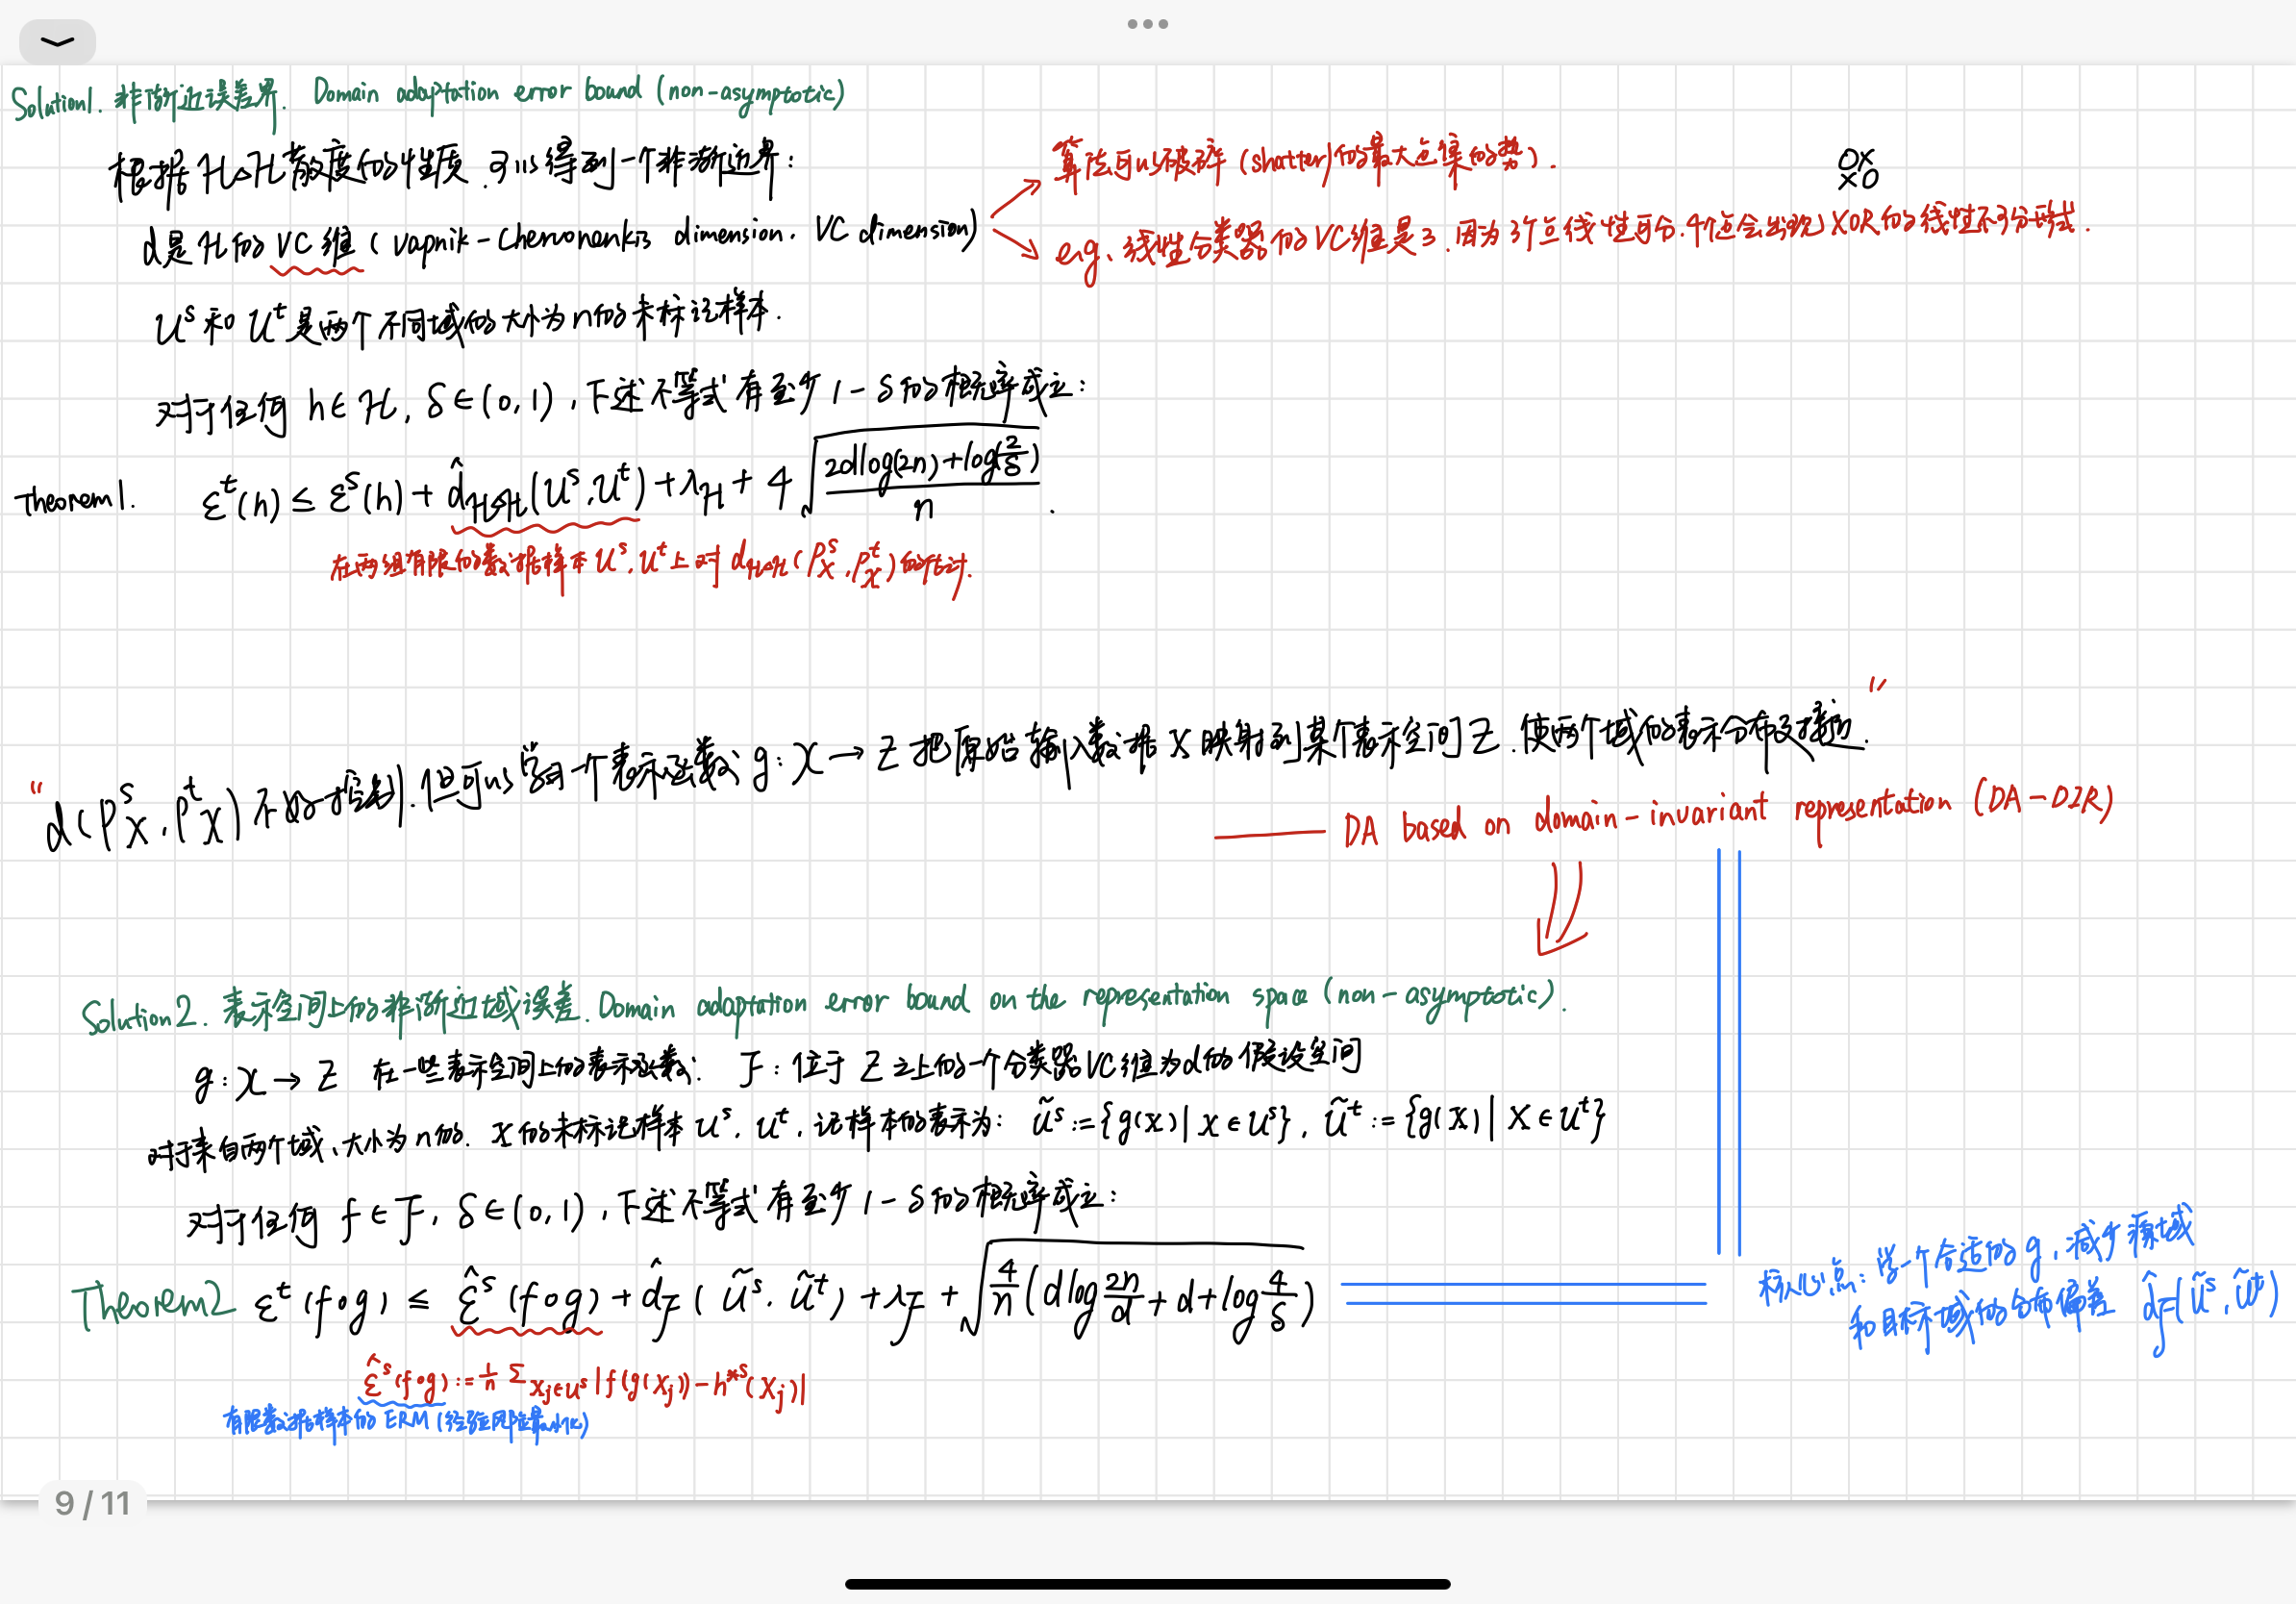 Solution1. 非渐近误差界. Domain adaptation error bound (non-asymptotic)
根据 H△H 散度的性质,可以得到一个非渐近界:
算法可以破碎 (shatter) 的最大点集的势).
OX
XO
d是H的 VC 维 (Vapnik-Chervonenkis dimension. VC dimension)
eg、线性分类器的VC维是3.因为3个点线性可分.4个点会出现XOR的线性不可分形式.
U^s 和 U^t 是两个不同域的大小为n的未标记样本.
对于任何 h∈H, δ∈(0,1), 下述不等式有至少 1-δ 的概率成立:
Theorem1. ε^t(h) ≤ ε^s(h) + d̂_{H△H}(U^s, U^t) + λ_H + 4√((2d log(2n) + log(2/δ))/n).
在两组有限的数据样本 U^s, U^t 上对 d_{H△H}(P_X^s, P_X^t) 的估计.
"d(P_X^s, P_X^t) 不好控制. 但可以学习一个表示函数 g: X → Z 把原始输入数据 X 映射到某个表示空间 Z. 使两个域的表示分布更接近."
—— DA based on domain-invariant representation (DA-DIR)
Solution2. 表示空间上的非渐近域误差. Domain adaptation error bound on the representation space (non-asymptotic).
g: X → Z 在一些表示空间上的表示函数; F: 位于 Z 之上的一个分类器VC维为d的假设空间
对于来自两个域、大小为n的. X的未标记样本 U^s, U^t, 记样本的表示为: ũ^s := {g(x) | x∈U^s}, ũ^t := {g(x) | x∈U^t}
对于任何 f∈F, δ∈(0,1), 下述不等式有至少 1-δ 的概率成立:
Theorem2 ε^t(f∘g) ≤ ε̂^s(f∘g) + d̂_F(ũ^s, ũ^t) + λ_F + √(4/n (d log 2n/d + d + log 4/δ))
核心点: 学一个合适的g, 减少源域
和目标域的分布偏差 d̂_F(ũ^s, ũ^t)
ε̂^s(f∘g) := 1/n Σ_{x_j∈U^s} |f(g(x_j)) - h^{*s}(x_j)|
有限数据样本的 ERM (经验风险最小化)
9 / 11